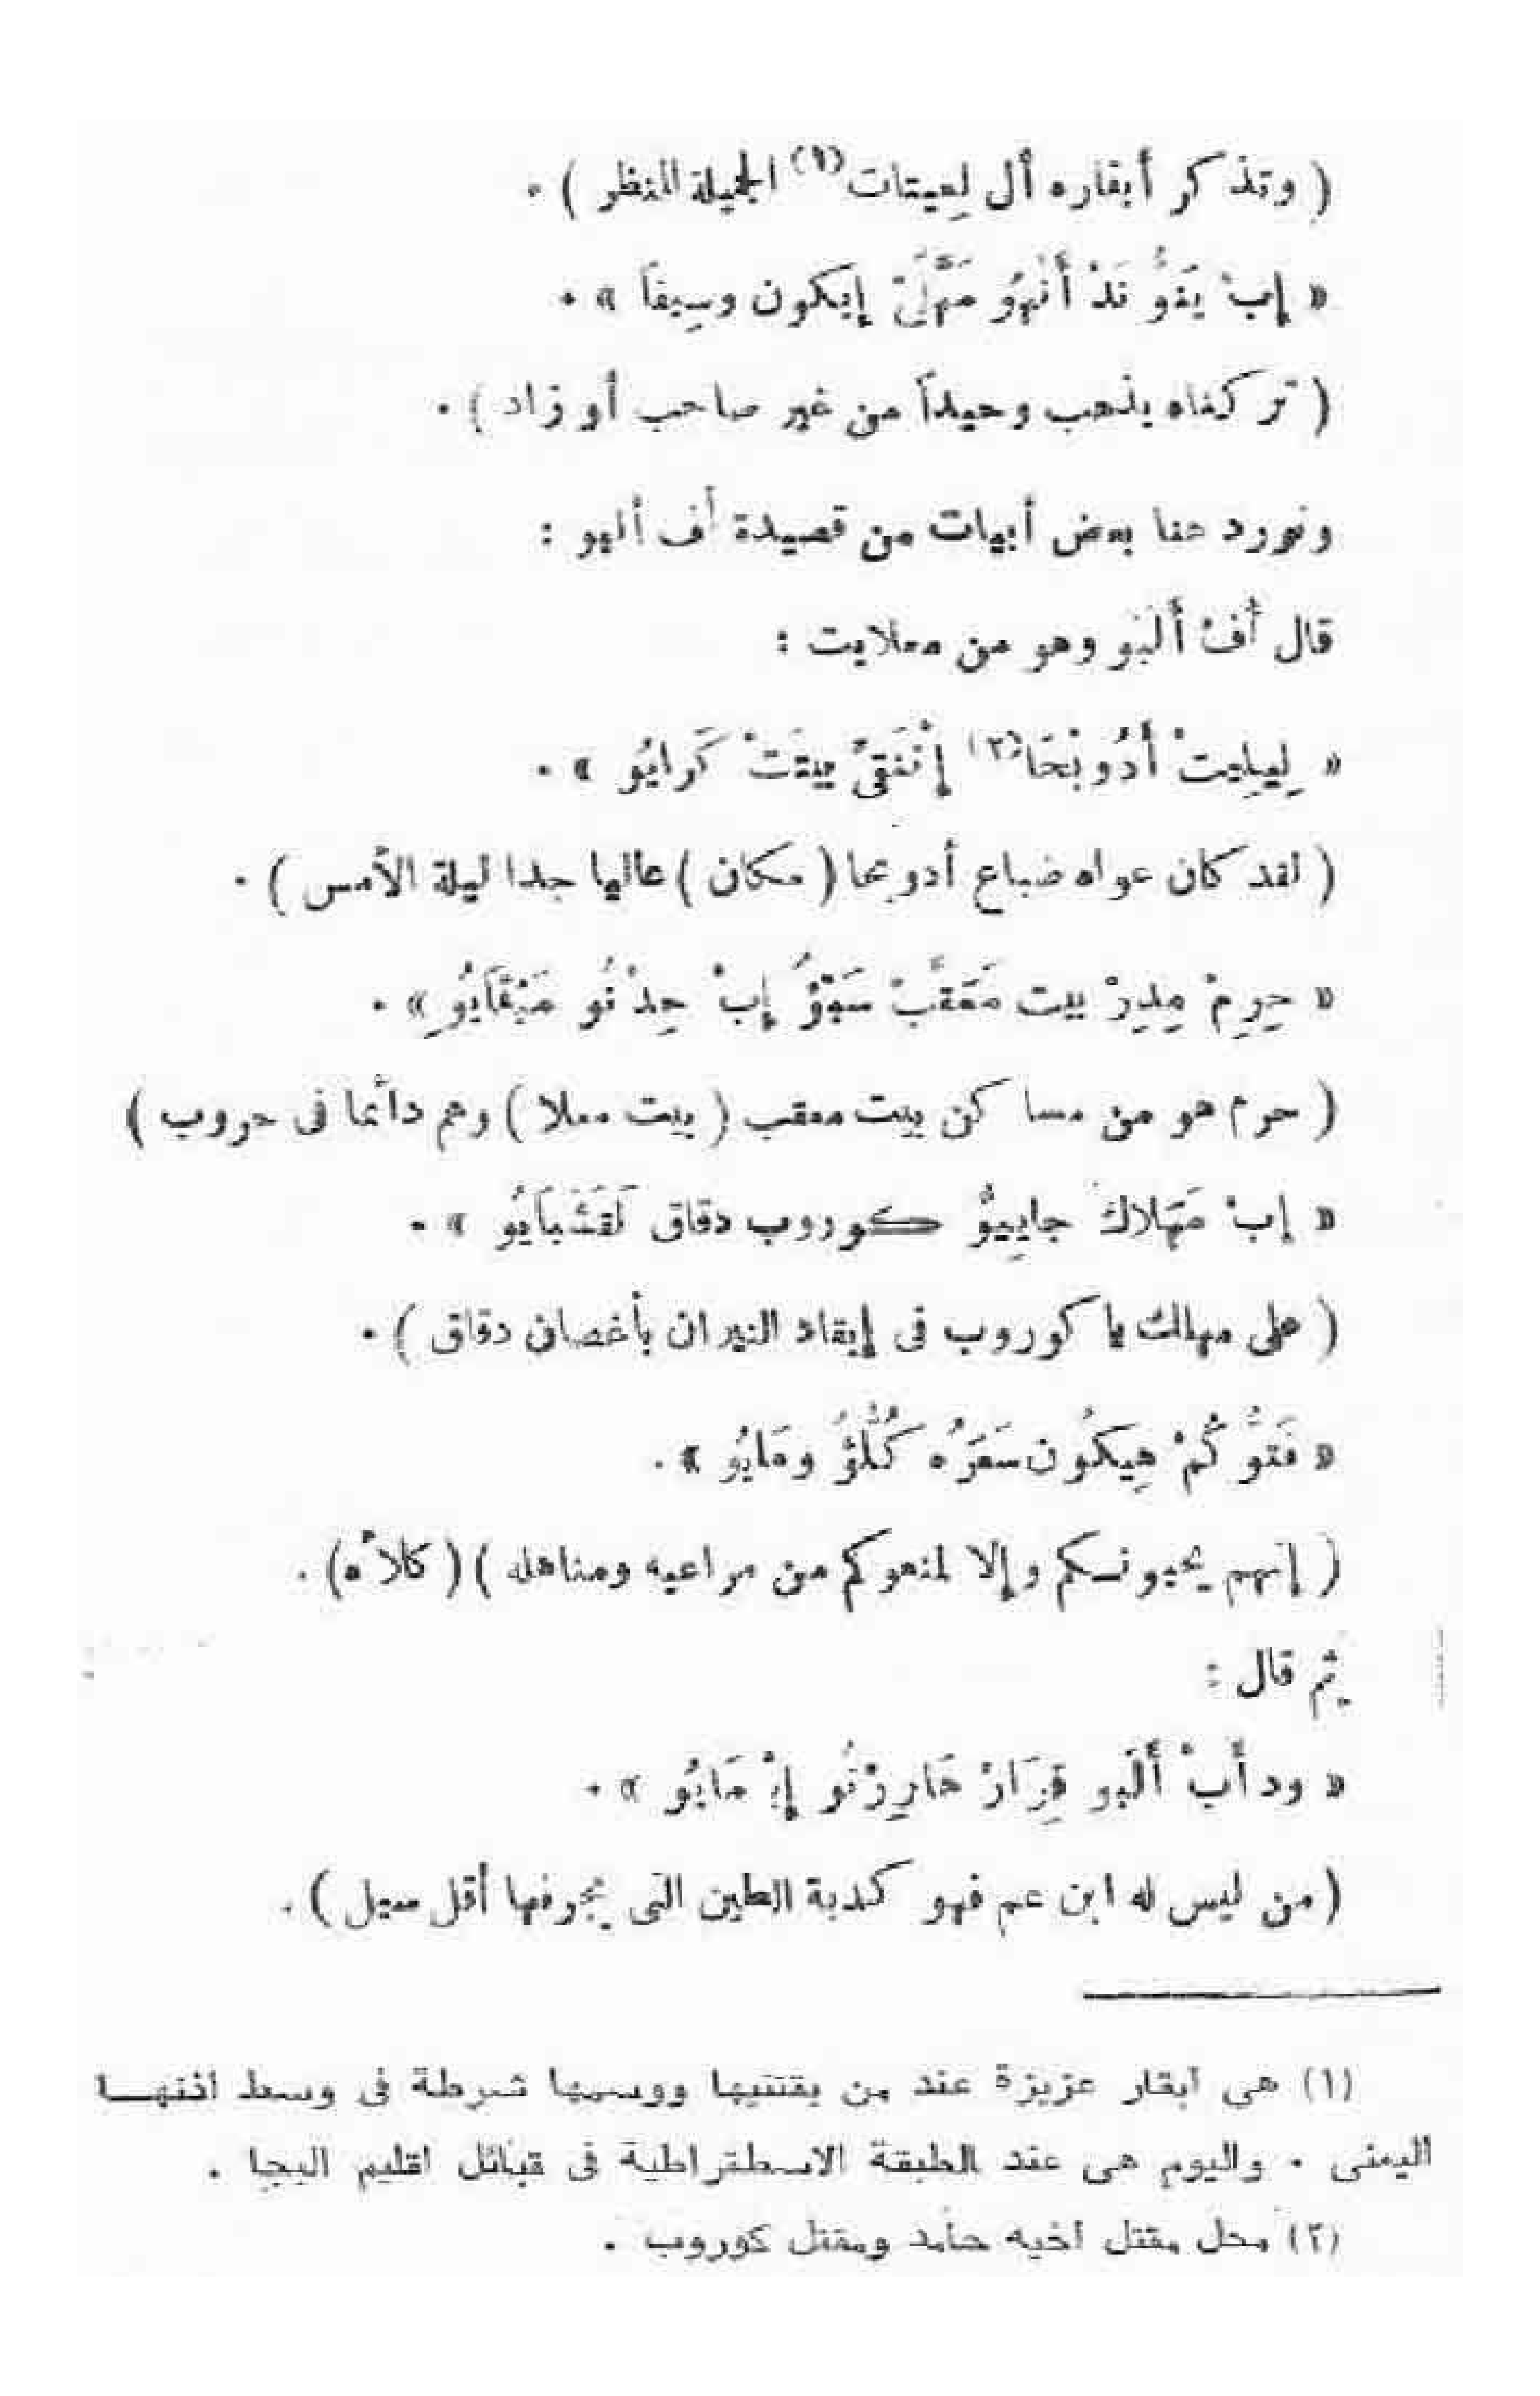 ( وتذكر أبقاره أل لِعيتات(١) الجميلة المنظر ) .
« إبْ يَفوُّ نَدْ أَنْهوُ مَهَّلَىْ إيكون وسِيفاً » .
( تركناه يذهب وحيداً من غير صاحب أو زاد ) .
ونورد هنا بعض أبيات من قصيدة أف ألبو :
قال أفْ أَلَبو وهو من معلايت :
« لِيلِيتْ أَدُوبْحَا(٢) إنْفَقَىْ بيتَتْ كَرايُو » .
( لقد كان عواه ضباع أدوبحا ( مكان ) عاليا جدا ليلة الأمس ) .
« حِرِمْ مِدِرْ بيت مَعَقَبْ سَبْؤُ إبْ حِدْ نُو مَبْقَايُو » .
( حرم هو من مساكن بيت معقب ( بيت معلا ) وهم دائما فى حروب )
« إبْ مَهَلاكَ جاِبِيوُّ كوروب دقاق لَقَشَبَايُو » .
( على مهلك يا كوروب فى إيقاد النيران بأغصان دقاق ) .
« فَتوُّ كُمْ هِيكُون سَعَرُه كُلُّؤُ ومَايُو » .
( إنهم يحبونكم وإلا لمنعوكم من مراعيه ومناهله ) ( كلأه ) .
ثم قال :
« ود أَبْ أَلَبو قِرَارْ هَارِرْنُو إبْ مَايُو » .
( من ليس له ابن عم فهو كدبة الطين التى يجرفها أقل سيل ) .
(١) هى أبقار عزيزة عند من يقتنيها ووسمها شرطة فى وسط أذنهـا
اليمنى . واليوم هى عند الطبقة الاسطقراطية فى قبائل اقليم البجا .
(٢) محل مقتل أخيه حامد ومقتل كوروب .